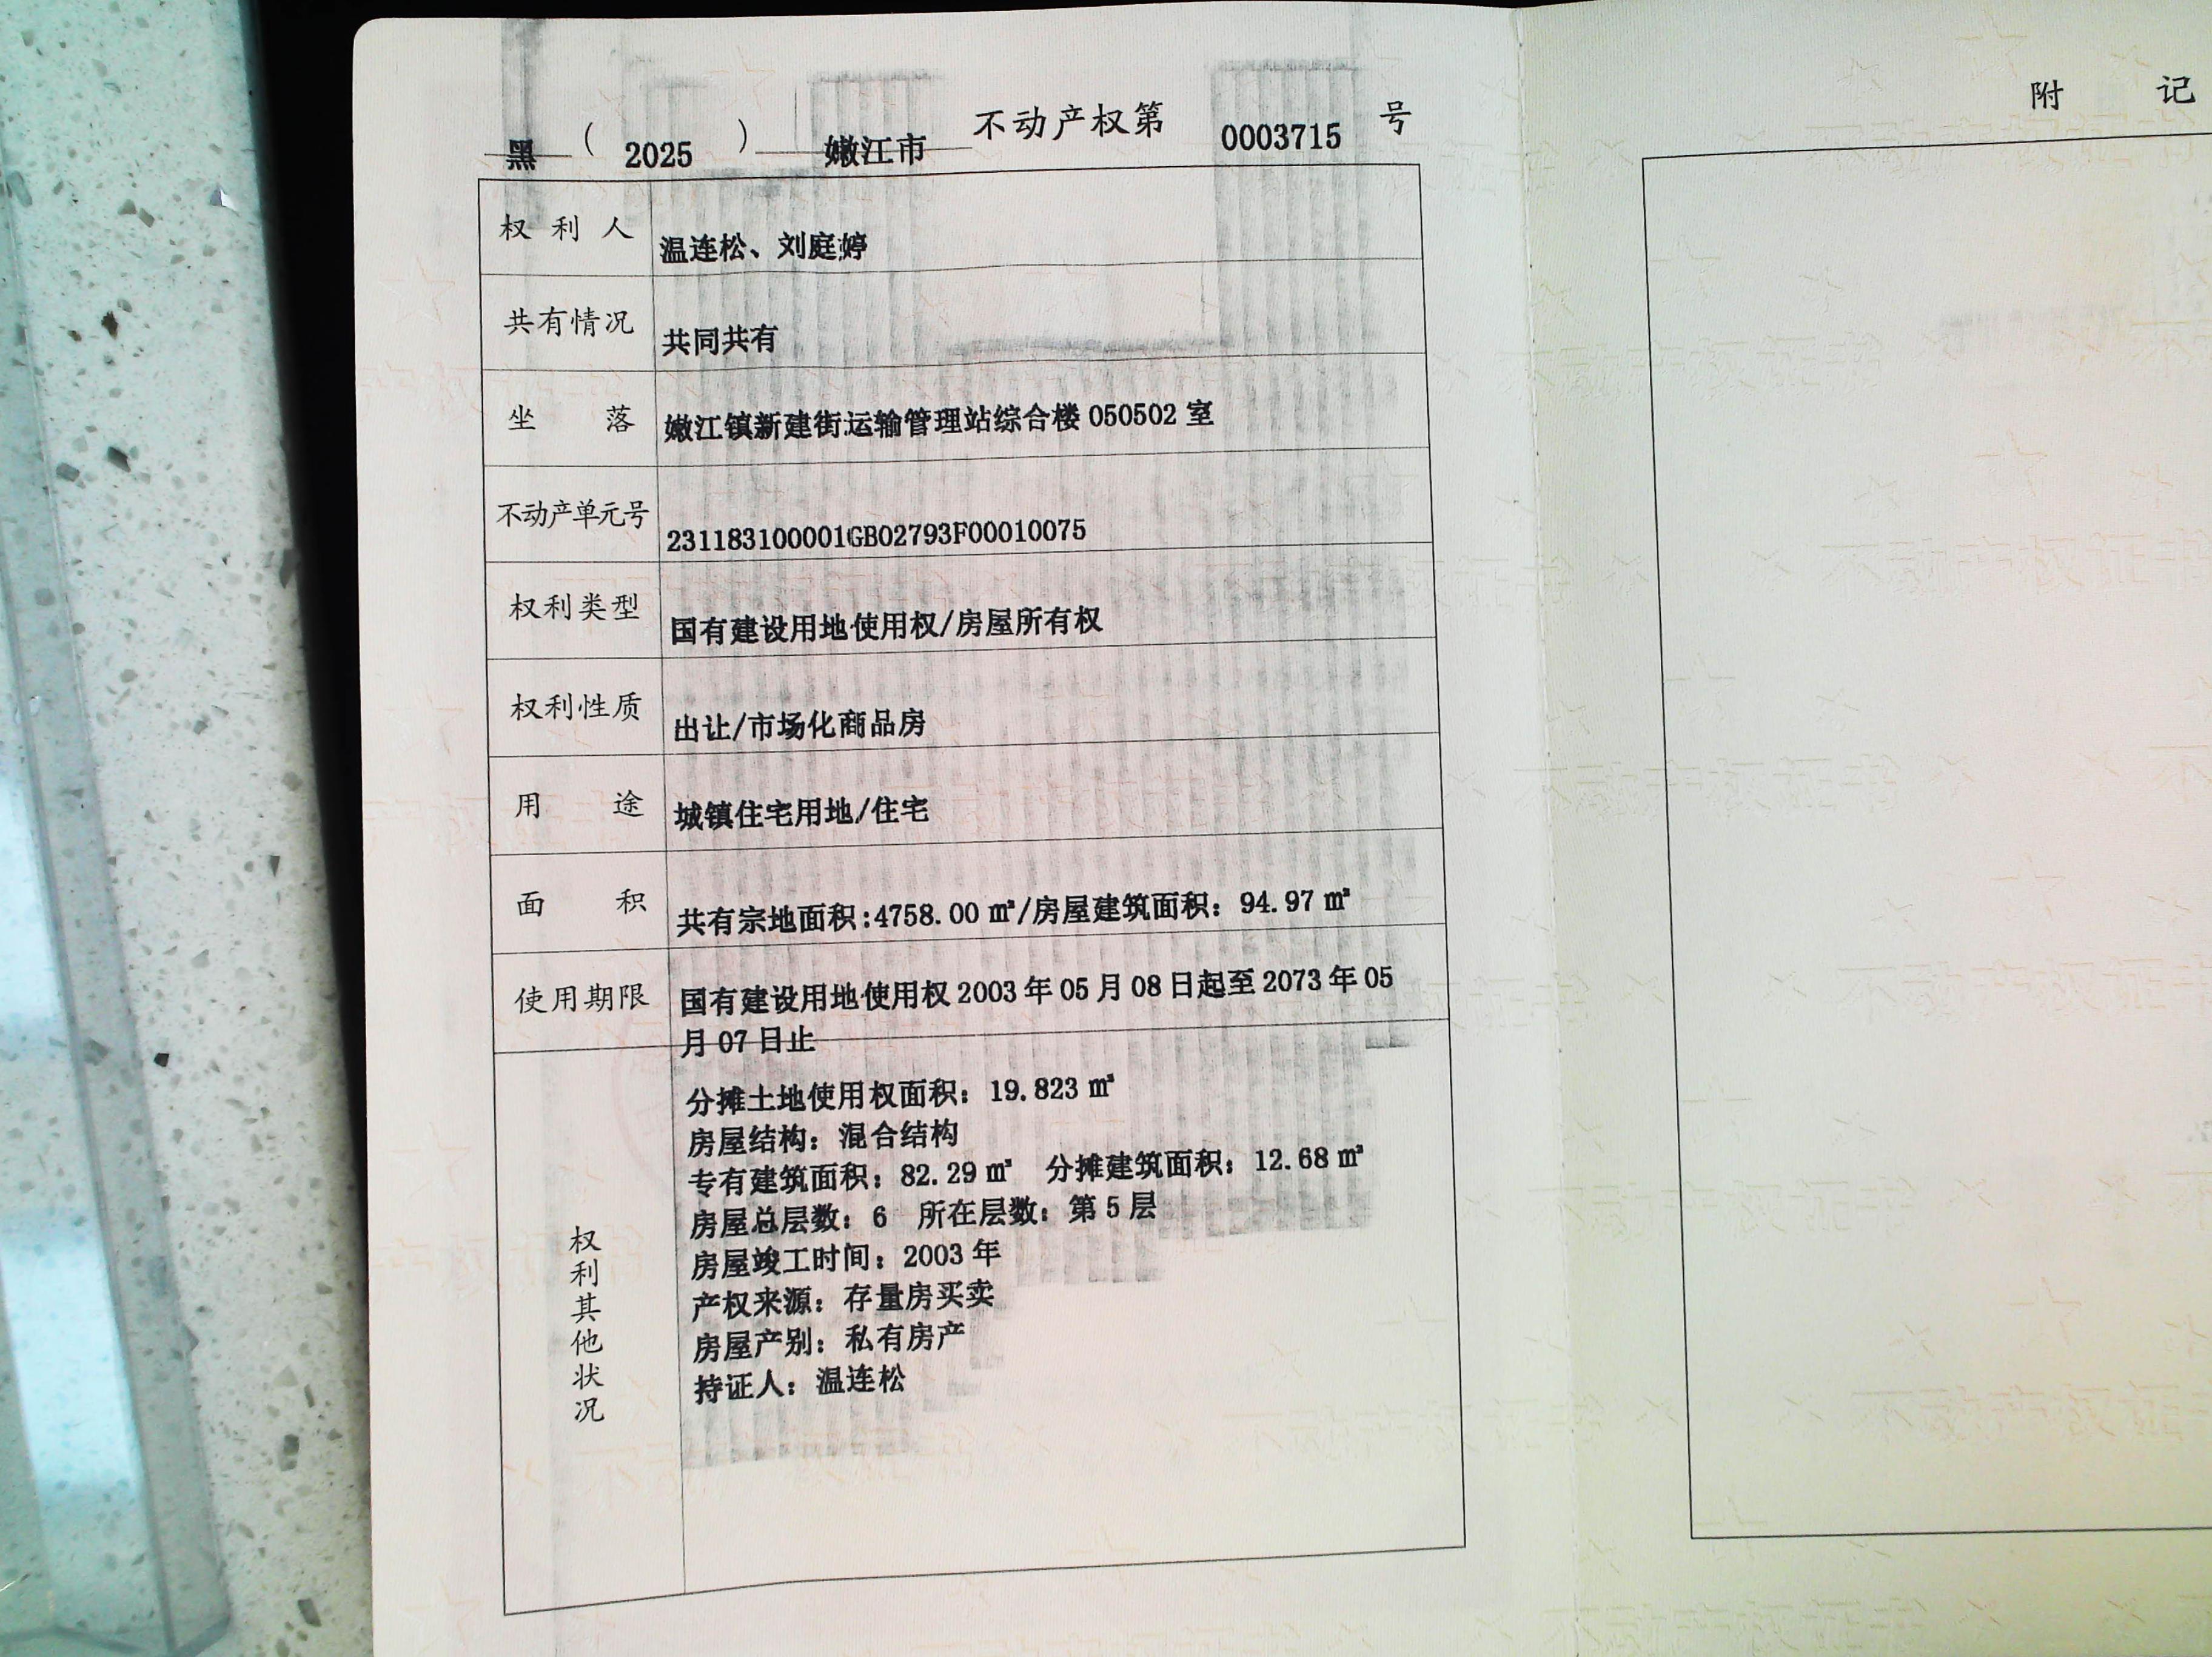 黑（2025）嫩江市不动产权第0003715号
权利人 温连松、刘庭婷
共有情况 共同共有
坐落 嫩江镇新建街运输管理站综合楼050502室
不动产单元号 231183100001GB02793F00010075
权利类型 国有建设用地使用权/房屋所有权
权利性质 出让/市场化商品房
用途 城镇住宅用地/住宅
面积 共有宗地面积:4758.00㎡/房屋建筑面积：94.97㎡
使用期限 国有建设用地使用权2003年05月08日起至2073年05
月07日止
权利其他状况
分摊土地使用权面积：19.823㎡
房屋结构：混合结构
专有建筑面积：82.29㎡ 分摊建筑面积：12.68㎡
房屋总层数：6 所在层数：第5层
房屋竣工时间：2003年
产权来源：存量房买卖
房屋产别：私有房产
持证人：温连松
附记